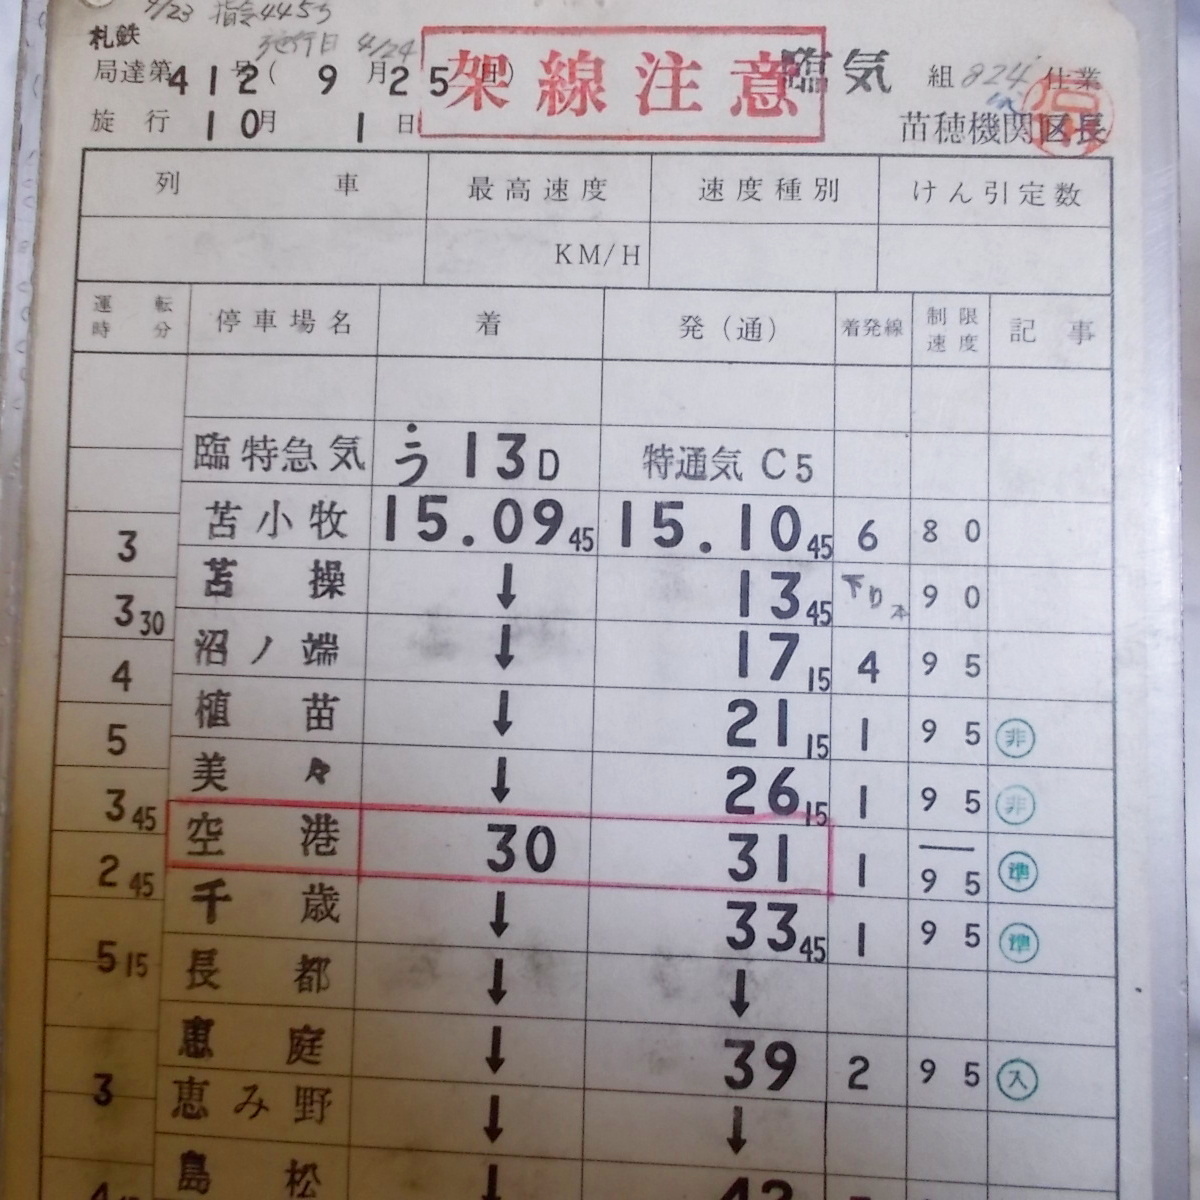 9/23 指令4455
札鉄 施行日 4/24
局達第412号(9月25日) 架線注意 臨気 組 824 仕業
施行 10月 1日 苗穂機関区長
列 車 最高速度 速度種別 けん引定数
KM/H
運転時分 停車場名 着 発(通) 着発線 制限速度 記事
臨特急気 う13D 特通気 C5
苫小牧 15.09 45 15.10 45 6 80
3
苫操 ↓ 13 45 下り本 90
3 30
沼ノ端 ↓ 17 15 4 95
4
植苗 ↓ 21 15 1 95 非
5
美々 ↓ 26 15 1 95 非
3 45
空港 30 31 1 95 準
2 45
千歳 ↓ 33 45 1 95 準
5 15
長都 ↓ ↓
恵庭 ↓ 39 2 95 入
3
恵み野 ↓ ↓
島松 ↓ 42